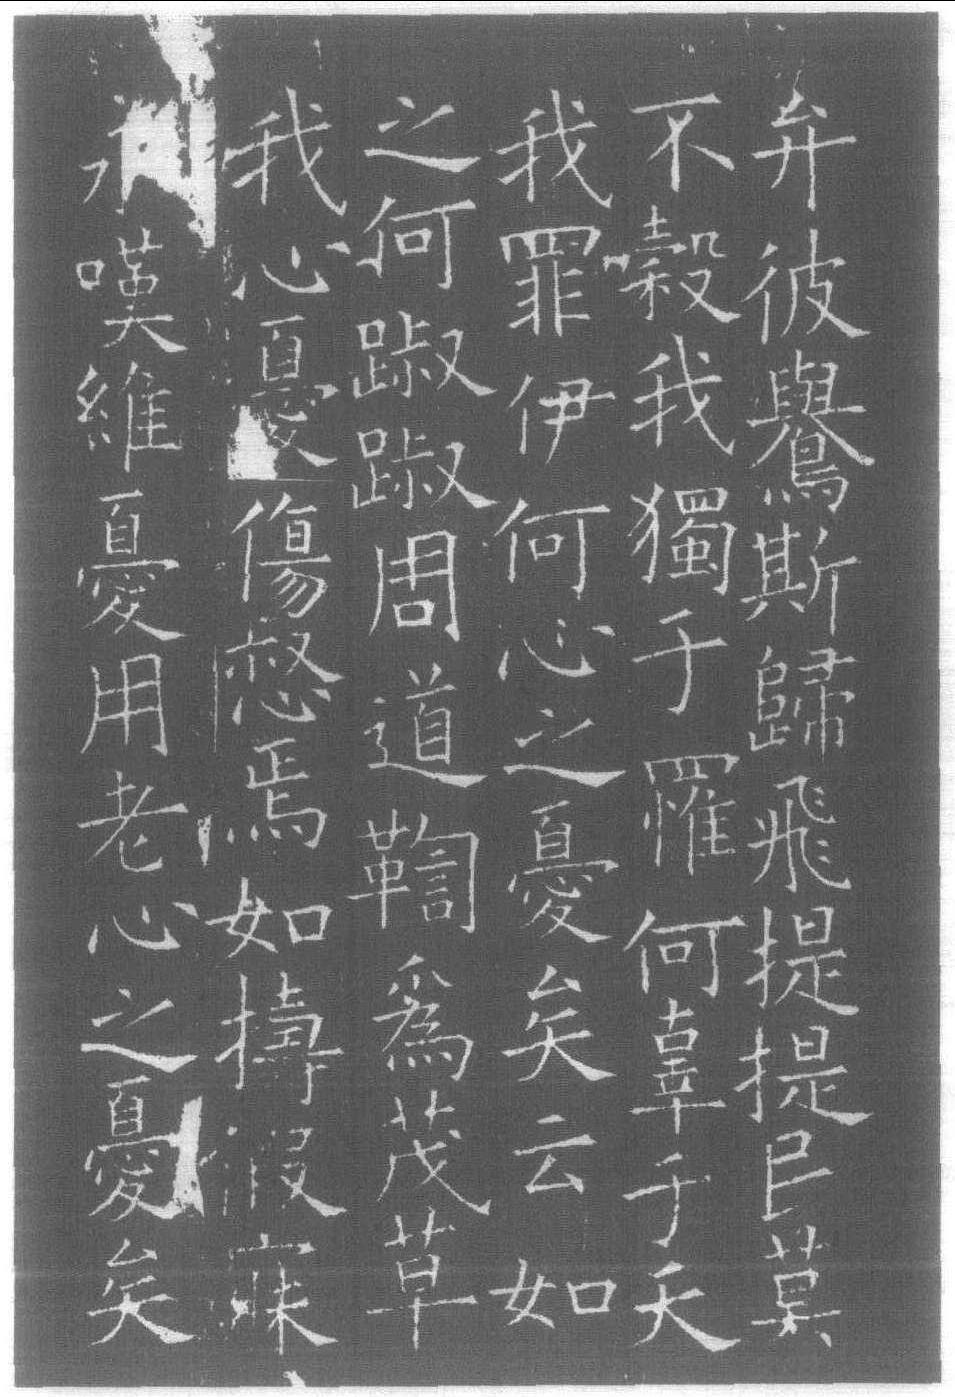 弁彼鸒斯歸飛提提民莫
不穀我獨于罹何辜于天
我罪伊何心之憂矣云如
之何踧踧周道鞫爲茂草
我心憂傷惄焉如擣假寐
永嘆維憂用老心之憂矣